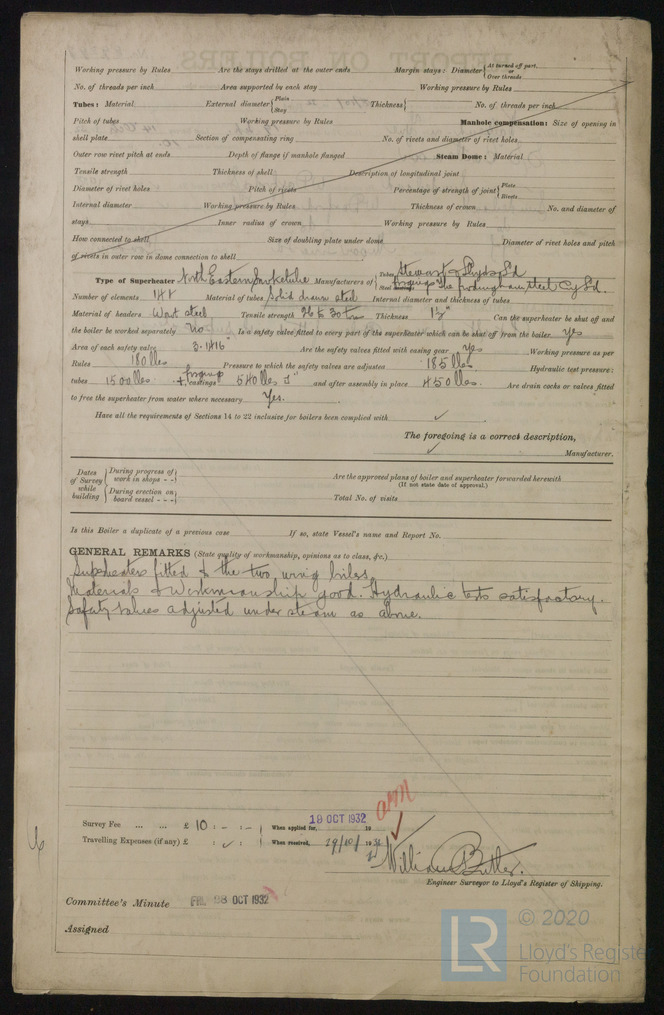 Working pressure by Rules Are the stays drilled at the outer ends Margin stays: Diameter { At turned off part, or Over threads
No. of threads per inch Area supported by each stay Working pressure by Rules
Tubes: Material External diameter { Plain Stay Thickness { No. of threads per inch
Pitch of tubes Working pressure by Rules Manhole compensation: Size of opening in
shell plate Section of compensating ring No. of rivets and diameter of rivet holes
Outer row rivet pitch at ends Depth of flange if manhole flanged Steam Dome: Material
Tensile strength Thickness of shell Description of longitudinal joint
Diameter of rivet holes Pitch of rivets Percentage of strength of joint { Plate Rivets
Internal diameter Working pressure by Rules Thickness of crown No. and diameter of
stays Inner radius of crown Working pressure by Rules
How connected to shell Size of doubling plate under dome Diameter of rivet holes and pitch
of rivets in outer row in dome connection to shell
Type of Superheater North Eastern Smoketube Manufacturers of { Tubes Stewarts & Lloyds Ld Steel forgings The Frodingham Steel Cy Ld.
Number of elements 144 Material of tubes Solid drawn steel Internal diameter and thickness of tubes
Material of headers Wort steel Tensile strength 26 to 30 tons Thickness Can the superheater be shut off and
the boiler be worked separately No Is a safety valve fitted to every part of the superheater which can be shut off from the boiler yes
Area of each safety valve 3.1416" Are the safety valves fitted with easing gear yes Working pressure as per
Rules 180 lbs Pressure to which the safety valves are adjusted 185 lbs Hydraulic test pressure:
tubes 1500 lbs. forgings castings 540 lbs □" and after assembly in place 450 lbs. Are drain cocks or valves fitted
to free the superheater from water where necessary Yes.
Have all the requirements of Sections 14 to 22 inclusive for boilers been complied with ✓
The foregoing is a correct description,
✓ Manufacturer.
Dates of Survey while building { During progress of work in shops - - } Are the approved plans of boiler and superheater forwarded herewith
(If not state date of approval.)
{ During erection on board vessel - - - } Total No. of visits
Is this Boiler a duplicate of a previous case If so, state Vessel's name and Report No.
GENERAL REMARKS (State quality of workmanship, opinions as to class, &c.)
Superheaters fitted to the two wing boilers.
Materials & Workmanship good. Hydraulic tests satisfactory.
Safety valves adjusted under steam as above.
Survey Fee ... ... £ 10 : - : - When applied for, 18 OCT 1932 19
Travelling Expenses (if any) £ : ✓ : When received, 29/10/ 1932
William Butler.
Engineer Surveyor to Lloyd's Register of Shipping.
Committee's Minute FRI. 28 OCT 1932
Assigned
LR © 2020
Lloyd's Register
Foundation